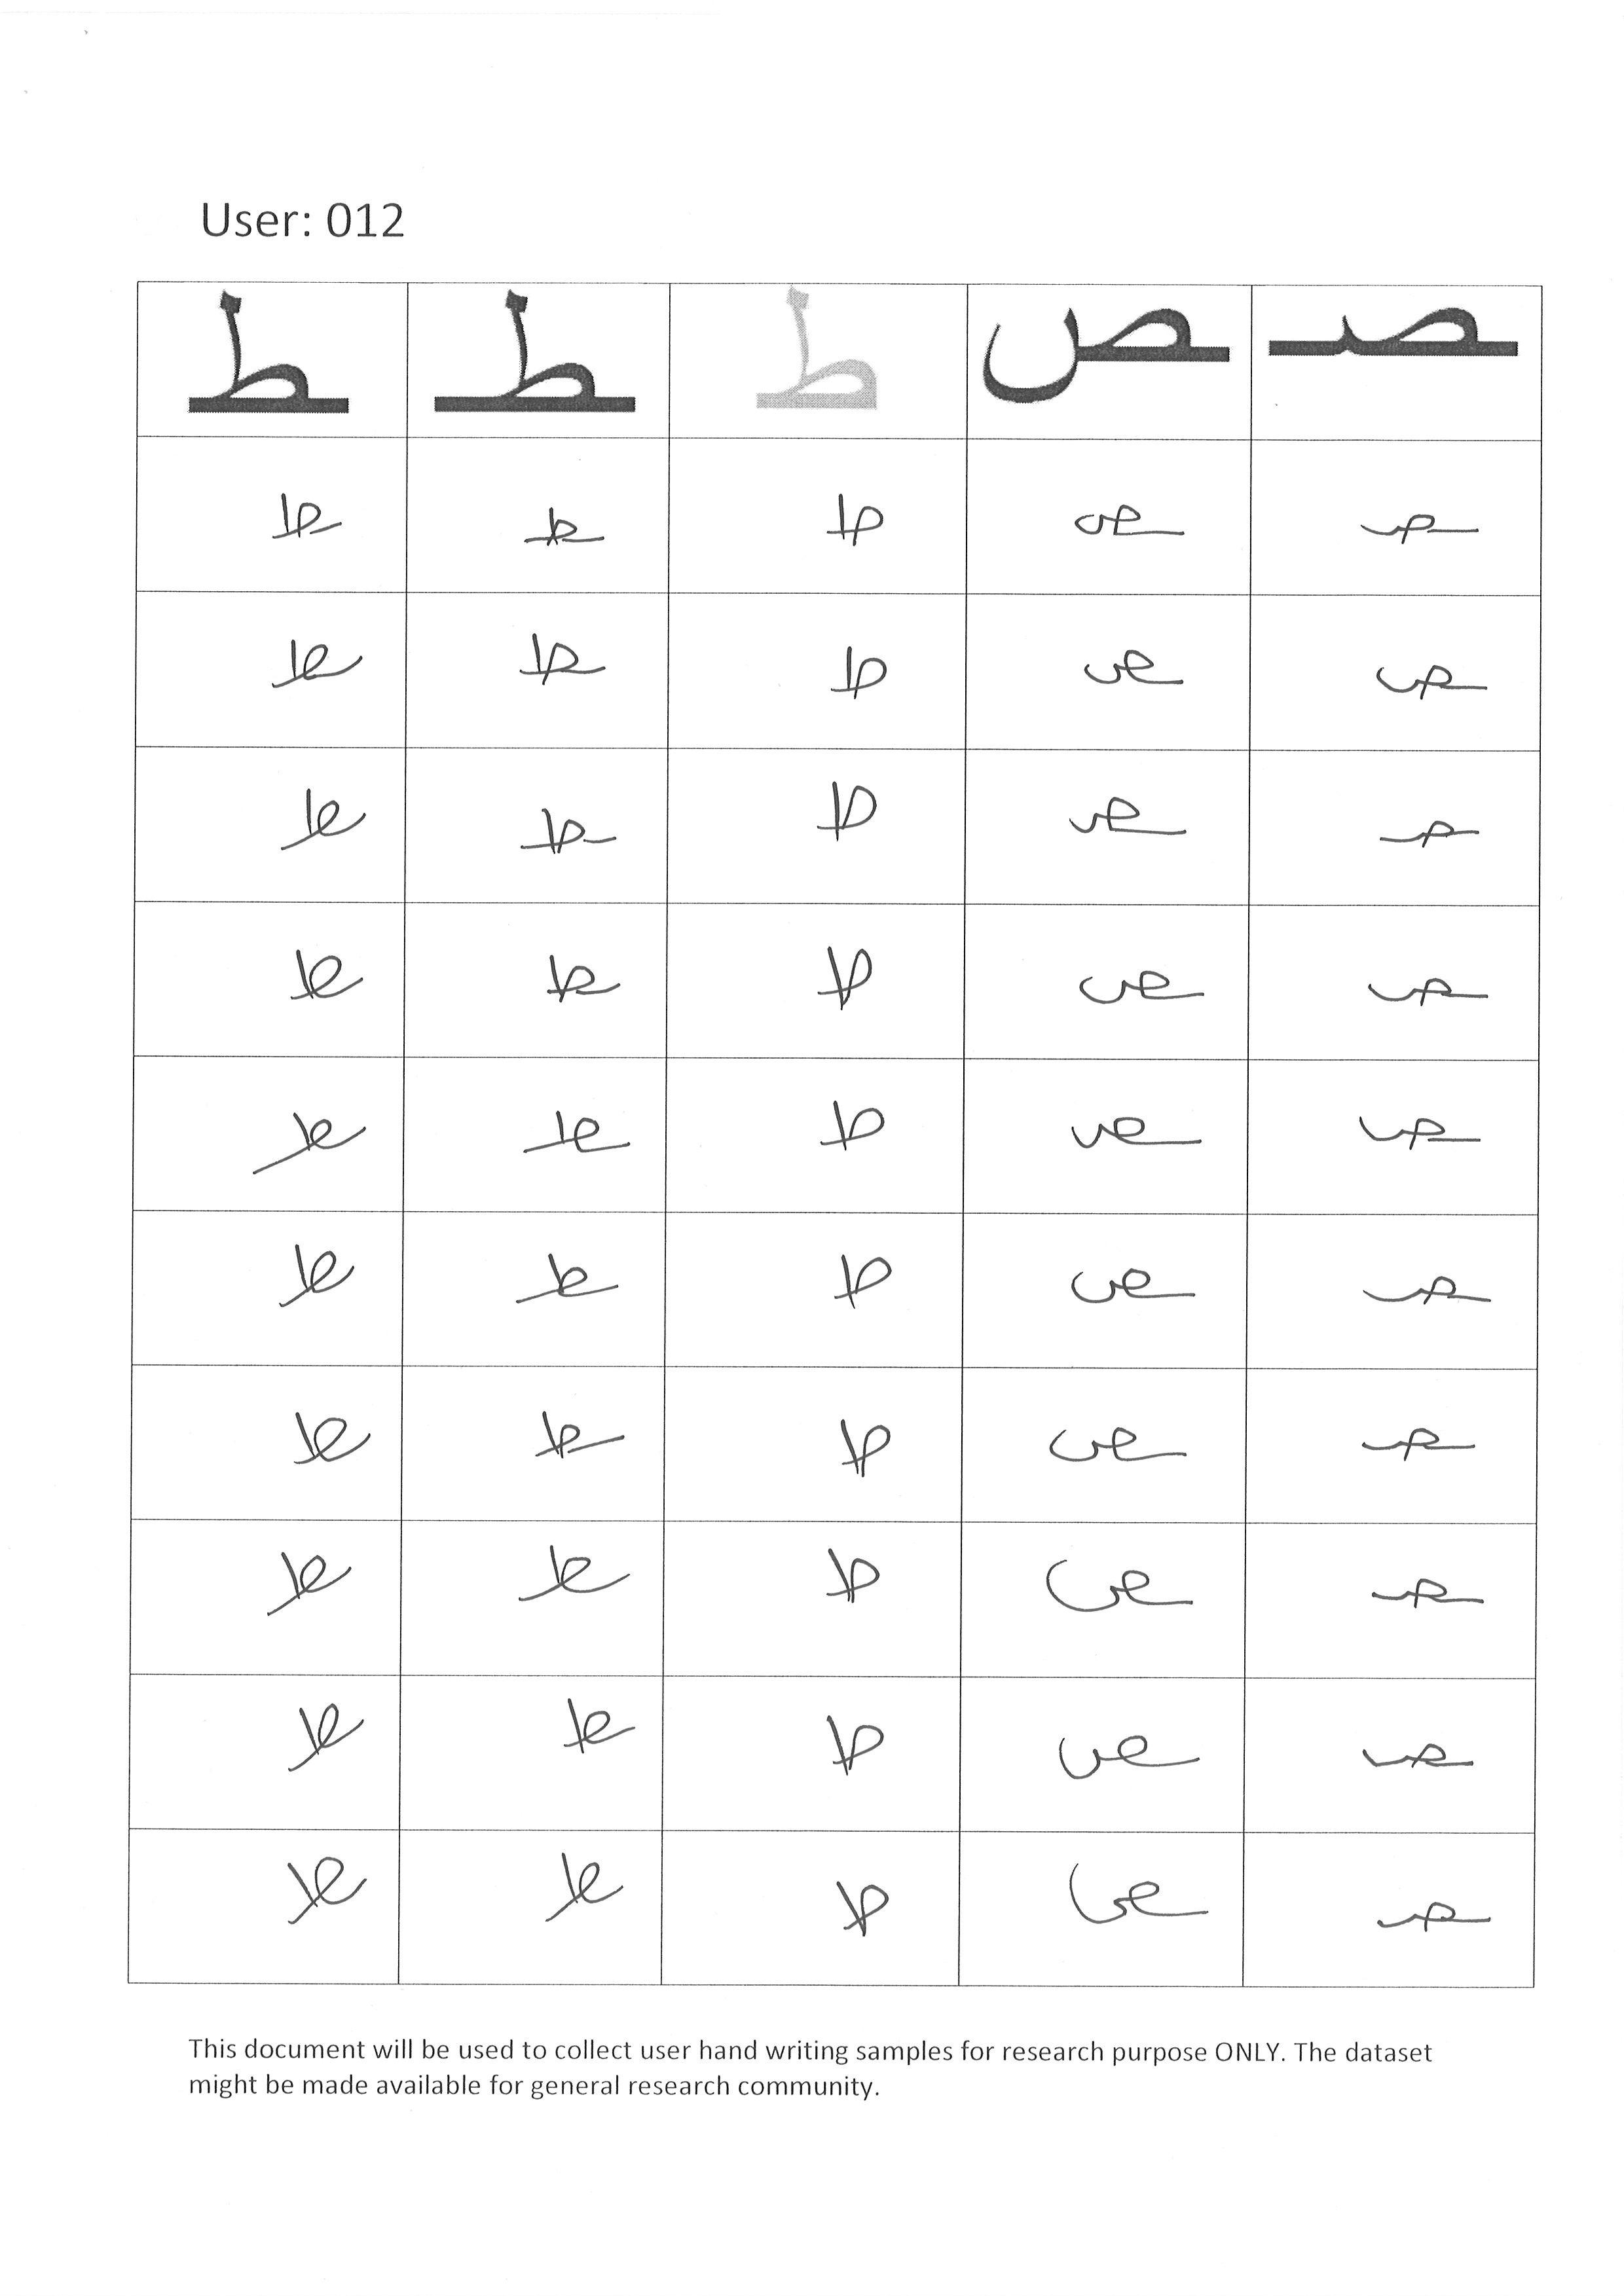 User: 012
ـصـ ـص ط ـطـ ـط
ـصـ ـص ط ـطـ ـط
ـصـ ـص ط ـطـ ـط
ـصـ ـص ط ـطـ ـط
ـصـ ـص ط ـطـ ـط
ـصـ ـص ط ـطـ ـط
ـصـ ـص ط ـطـ ـط
ـصـ ـص ط ـطـ ـط
ـصـ ـص ط ـطـ ـط
ـصـ ـص ط ـطـ ـط
ـصـ ـص ط ـطـ ـط
This document will be used to collect user hand writing samples for research purpose ONLY. The dataset
might be made available for general research community.